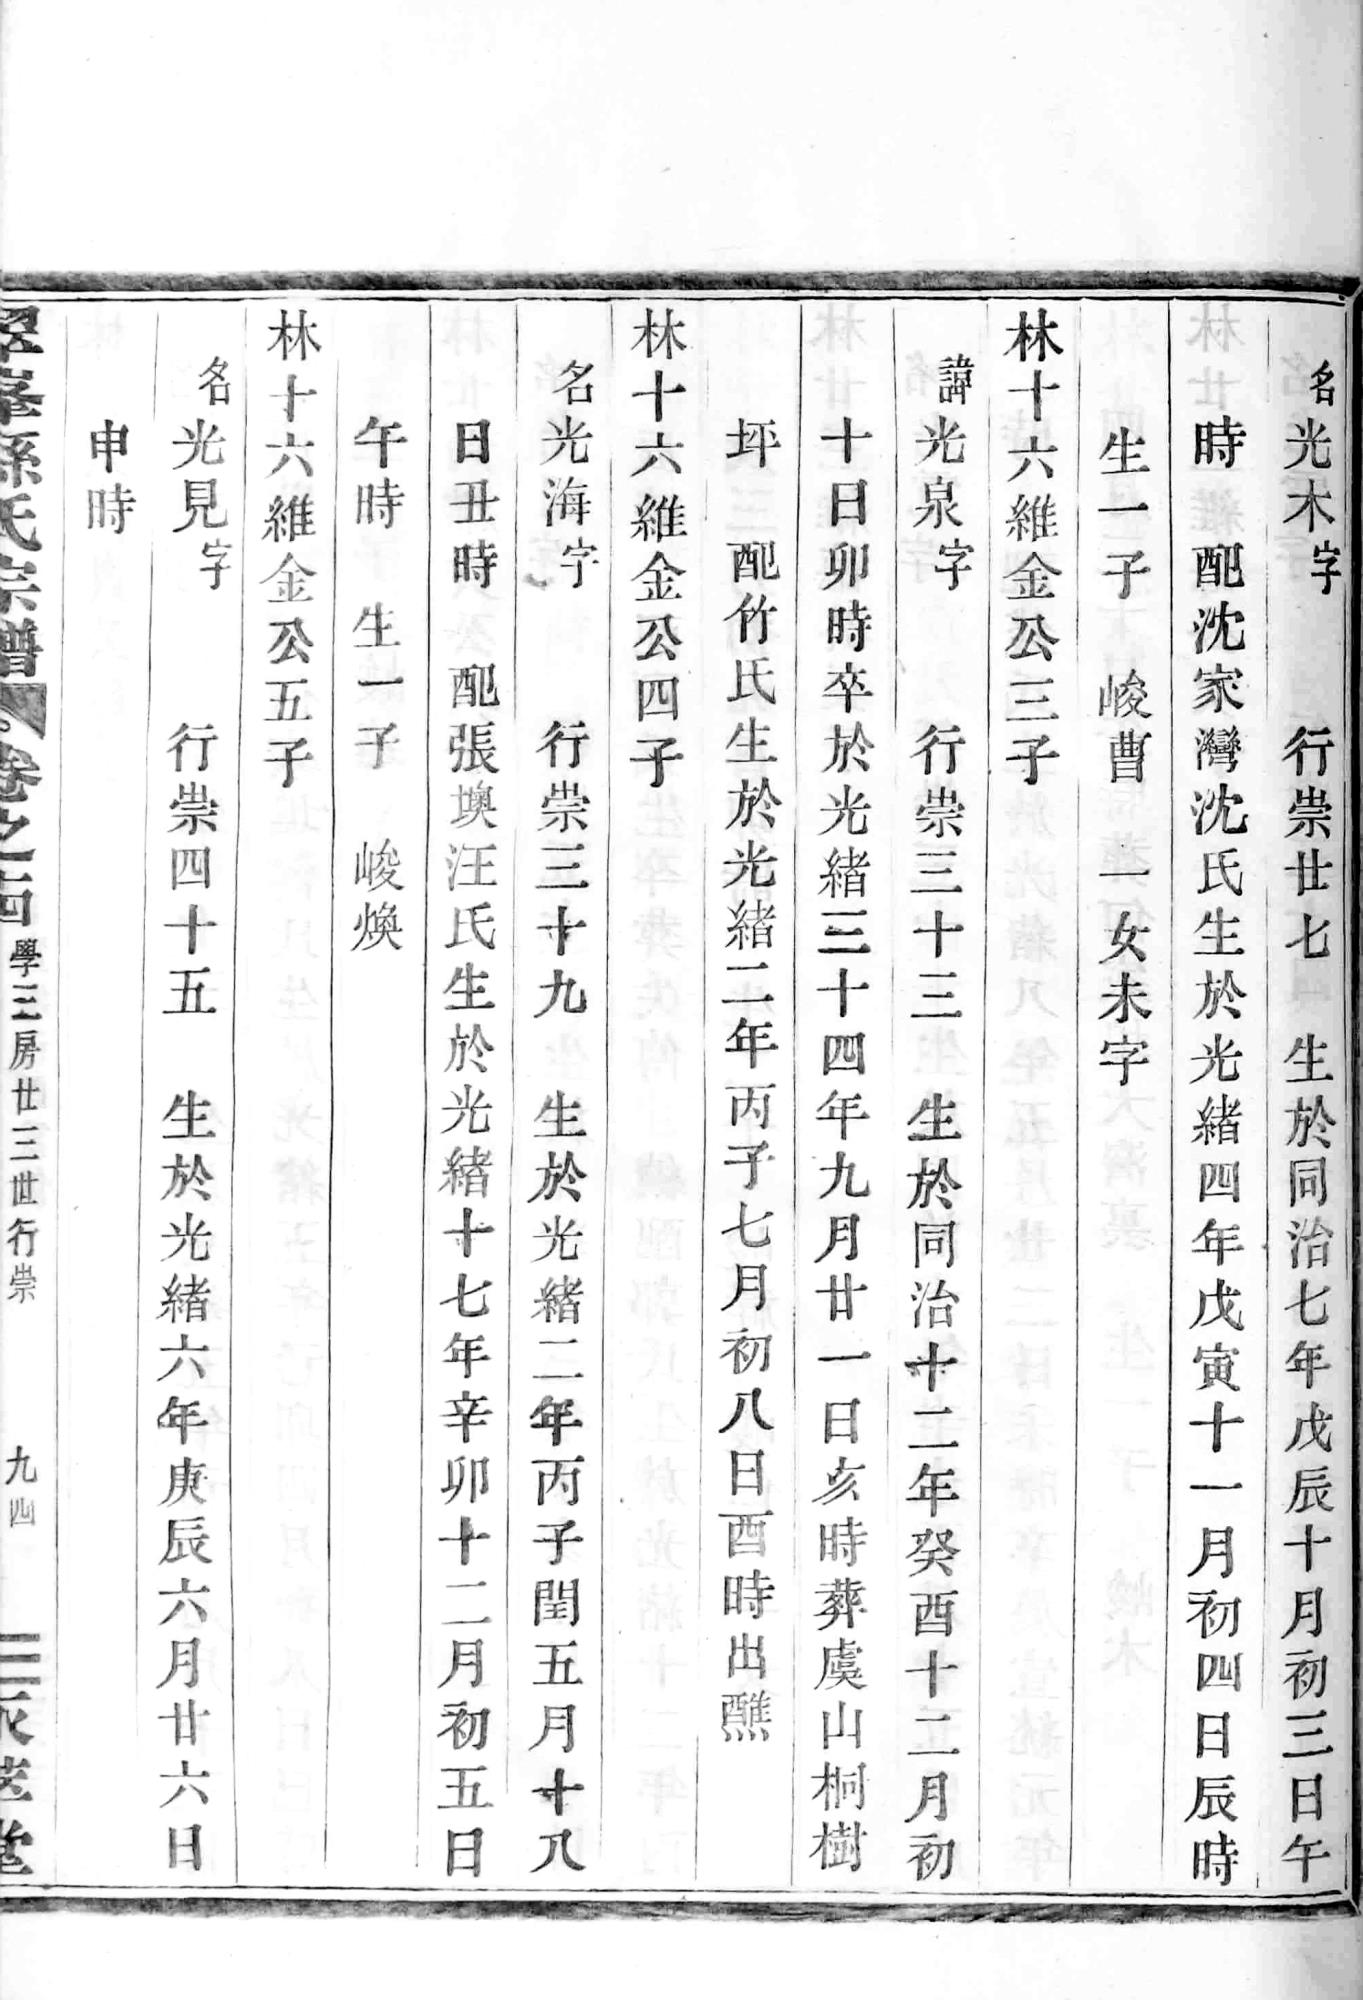 名光木字　行崇廿七　生於同治七年戊辰十月初三日午
時　配沈家灣沈氏生於光緒四年戊寅十一月初四日辰時
生一子　峻曹　一女未字
林十六維金公三子
諱光泉字　行崇三十三　生於同治十二年癸酉十二月初
十日卯時卒於光緒三十四年九月廿一日亥時葬虞山桐樹
坪　配竹氏生於光緒二年丙子七月初八日酉時出醮
林十六維金公四子
名光海字　行崇三十九　生於光緒二年丙子閏五月十八
日丑時　配張墺汪氏生於光緒十七年辛卯十二月初五日
午時　生一子　峻煥
林十六維金公五子
名光見字　行崇四十五　生於光緒六年庚辰六月廿六日
申時
孫氏宗譜　卷之一四　學三房廿三世行崇　九四　堂